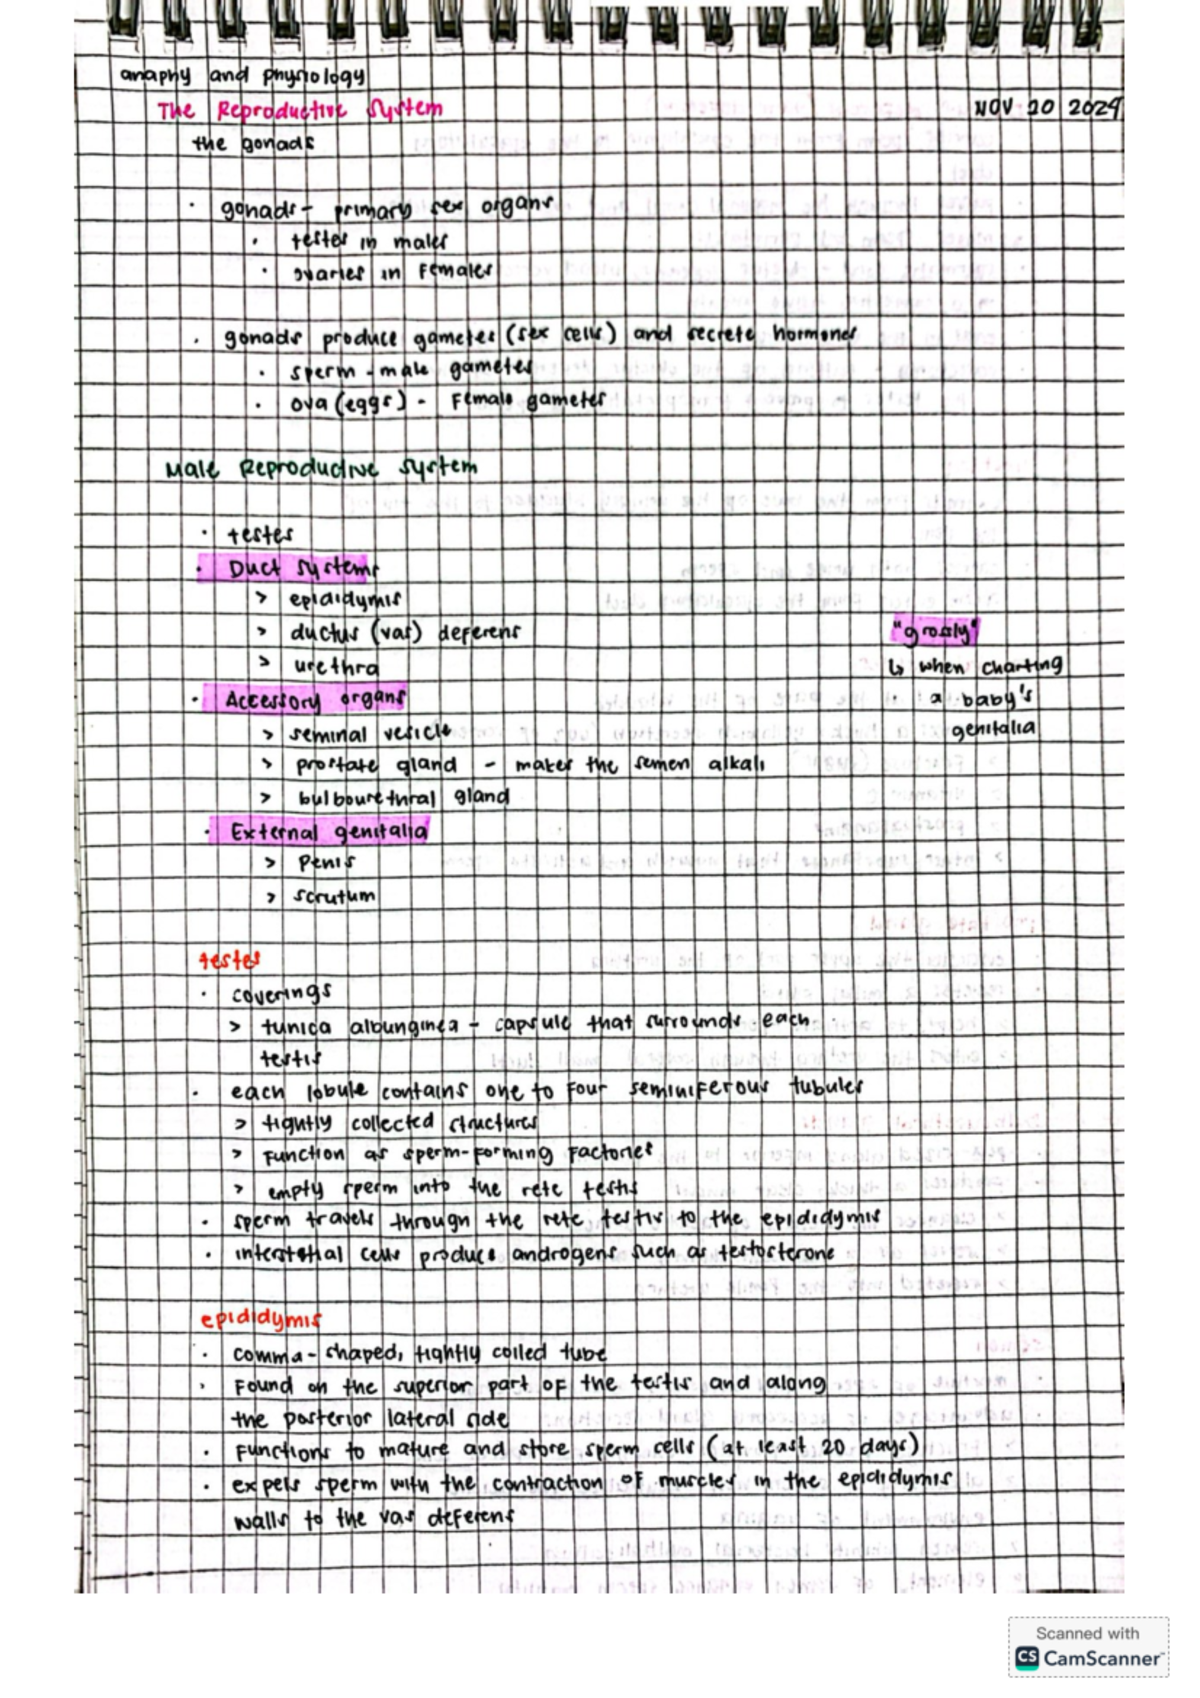 anaphy and physiology
The Reproductive System
NOV 20 2024
the gonads
· gonads - primary sex organs
· testes in males
· ovaries in Females
· gonads produce gametes (sex cells) and secrete hormones
· sperm - male gametes
· ova (eggs) - Female gametes
Male Reproductive System
· testes
· Duct systems
> epididymis
> ductus (vas) deferens
> urethra
· Accessory organs
> seminal vesicle
> prostate gland - makes the semen alkali
> bulbourethral gland
· External genitalia
> Penis
> scrutum
"grossly"
↳ when charting
a baby's
genitalia
testes
· coverings
> tunica albunginea - capsule that surrounds each
testis
· each lobule contains one to Four seminiferous tubules
> tightly collected structures
> Function as sperm-Forming Factories
> empty sperm into the rete testis
· sperm travels through the rete testis to the epididymis
· interstitial cells produce androgens such as testosterone
epididymis
· comma-shaped, tightly coiled tube
· Found on the superior part of the testis and along
the posterior lateral side
· Functions to mature and store sperm cells (at least 20 days)
· expels sperm with the contraction of muscles in the epididymis
walls to the vas deferens
Scanned with
CS CamScanner